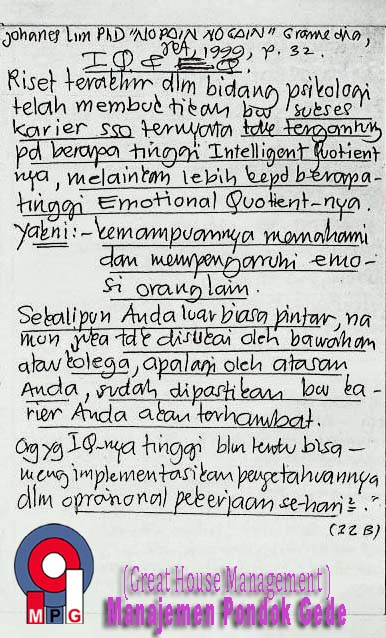 Johanes Lim PhD "NO PAIN NO GAIN" Gramedia,
Jkt, 1999, p. 32.
I Q & E Q
Riset terakhir dlm bidang psikologi
telah membuktikan bw sukses
karier sso ternyata tdk tergantung
pd berapa tinggi Intelligent Quotient
nya, melainkan lebih kepd berapa-
tinggi Emotional Quotient-nya.
Yakni: - kemampuannya memahami
dan mempengaruhi emo-
si orang lain.
Sekalipun Anda luar biasa pintar, na
mun jika tdk disukai oleh bawahan
atau kolega, apalagi oleh atasan
Anda, sudah dipastikan bw ka-
rier Anda akan terhambat.
Org yg IQ-nya tinggi blm tentu bisa -
mengimplementasikan pengetahuannya
dlm oprsional pekerjaan se-hari².
(22B)
MPG
(Great House Management)
Manajemen Pondok Gede